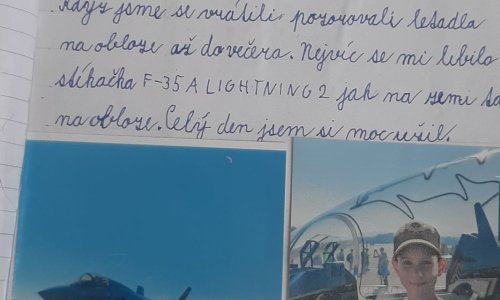 Když jsme se vrátili, pozorovali letadla
na obloze až do večera. Nejvíc se mi líbilo
stíhačka F-35 A LIGHTNING 2 jak na zemi ta
na obloze. Celý den jsem si moc užil.